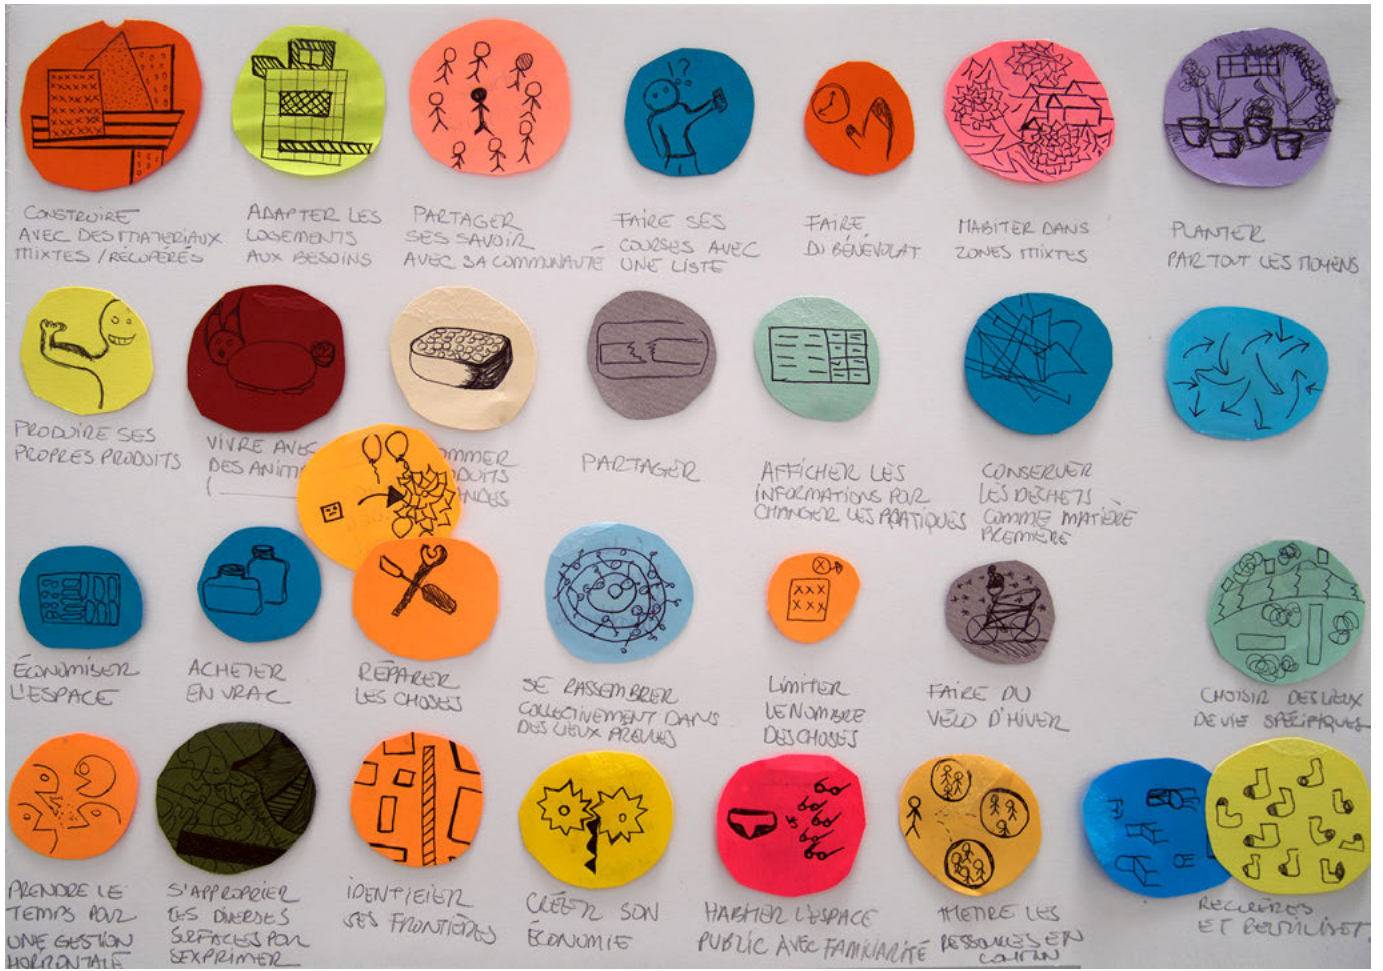 CONSTRUIRE
AVEC DES MATERIAUX
MIXTES / RÉCUPÉRÉS
ADAPTER LES
LOGEMENTS
AUX BESOINS
PARTAGER
SES SAVOIR
AVEC SA COMMUNAUTÉ
FAIRE SES
COURSES AVEC
UNE LISTE
FAIRE
DU BÉNÉVOLAT
HABITER DANS
ZONES MIXTES
PLANTER
PAR TOUT LES MOYENS
PRODUIRE SES
PROPRES PRODUITS
VIVRE AVEC
DES ANIM
OMMER
DUITS
ANDES
PARTAGER
AFFICHER LES
INFORMATIONS POUR
CHANGER LES PRATIQUES
CONSERVER
LES DÉCHETS
COMME MATIÈRE
PREMIÈRE
ÉCONOMISER
L'ESPACE
ACHETER
EN VRAC
RÉPARER
LES CHOSES
SE RASSEMBRER
COLLECTIVEMENT DANS
DES LIEUX PREVUES
LIMITER
LE NOMBRE
DES CHOSES
FAIRE DU
VÉLO D'HIVER
CHOISIR DES LIEUX
DE VIE SPÉCIFIQUES
PRENDRE LE
TEMPS POUR
UNE GESTION
HORIZONTALE
S'APPROPRIER
LES DIVERSES
SURFACES POUR
S'EXPRIMER
IDENTIFIER
SES FRONTIÈRES
CRÉER SON
ÉCONOMIE
HABITER L'ESPACE
PUBLIC AVEC FAMILIARITÉ
METTRE LES
RESSOURCES EN
COMMUN
ET RÉUTILISER